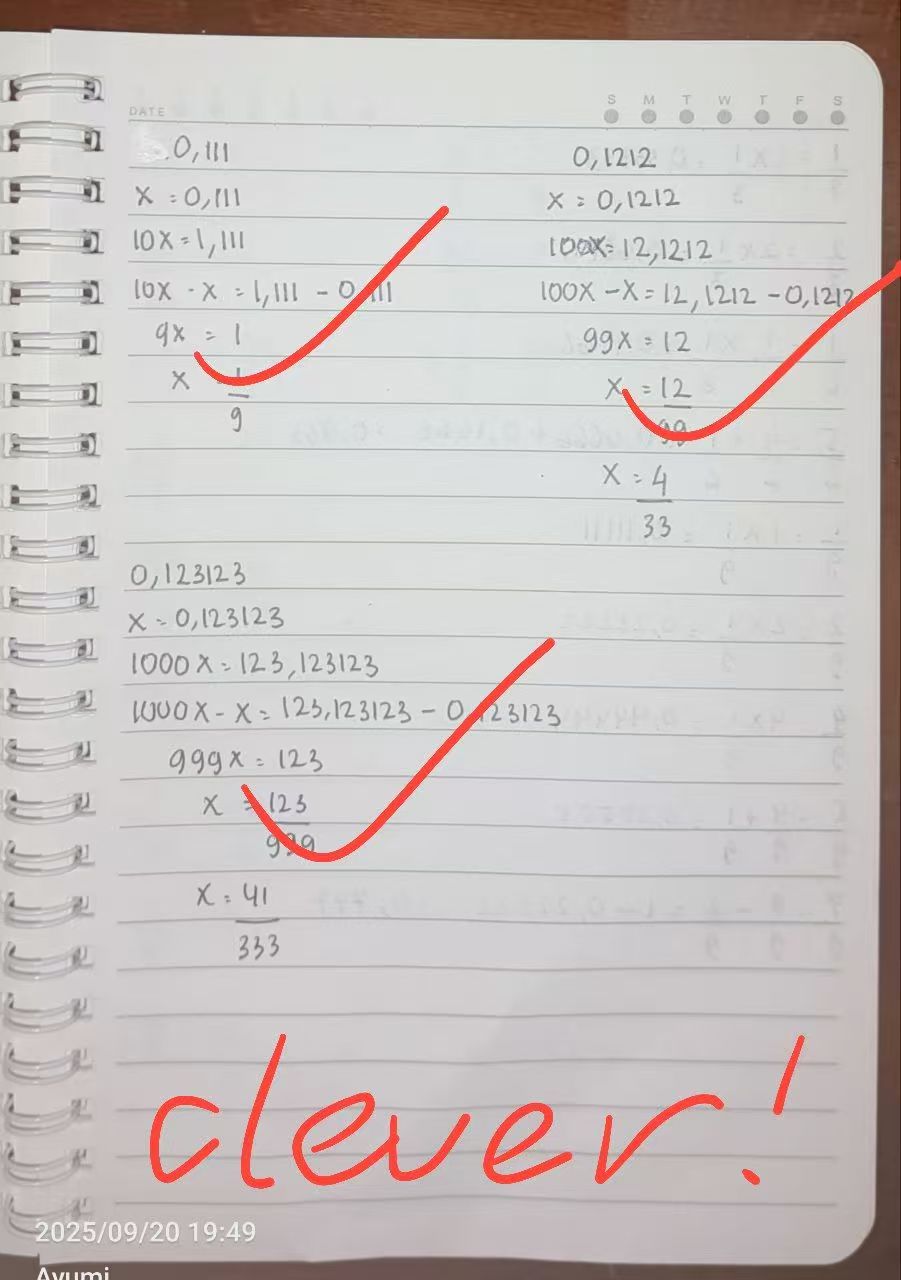 DATE
S M T W T F S
0,111
x = 0,111
10x = 1,111
10x - x = 1,111 - 0,111
9x = 1
x = 1
9
0,1212
x = 0,1212
100x = 12,1212
100x - x = 12,1212 - 0,1212
99x = 12
x = 12
99
x = 4
33
0,123123
x = 0,123123
1000x = 123,123123
1000x - x = 123,123123 - 0,123123
999x = 123
x = 123
999
x = 41
333
clever!
2025/09/20 19:49
Ayumi